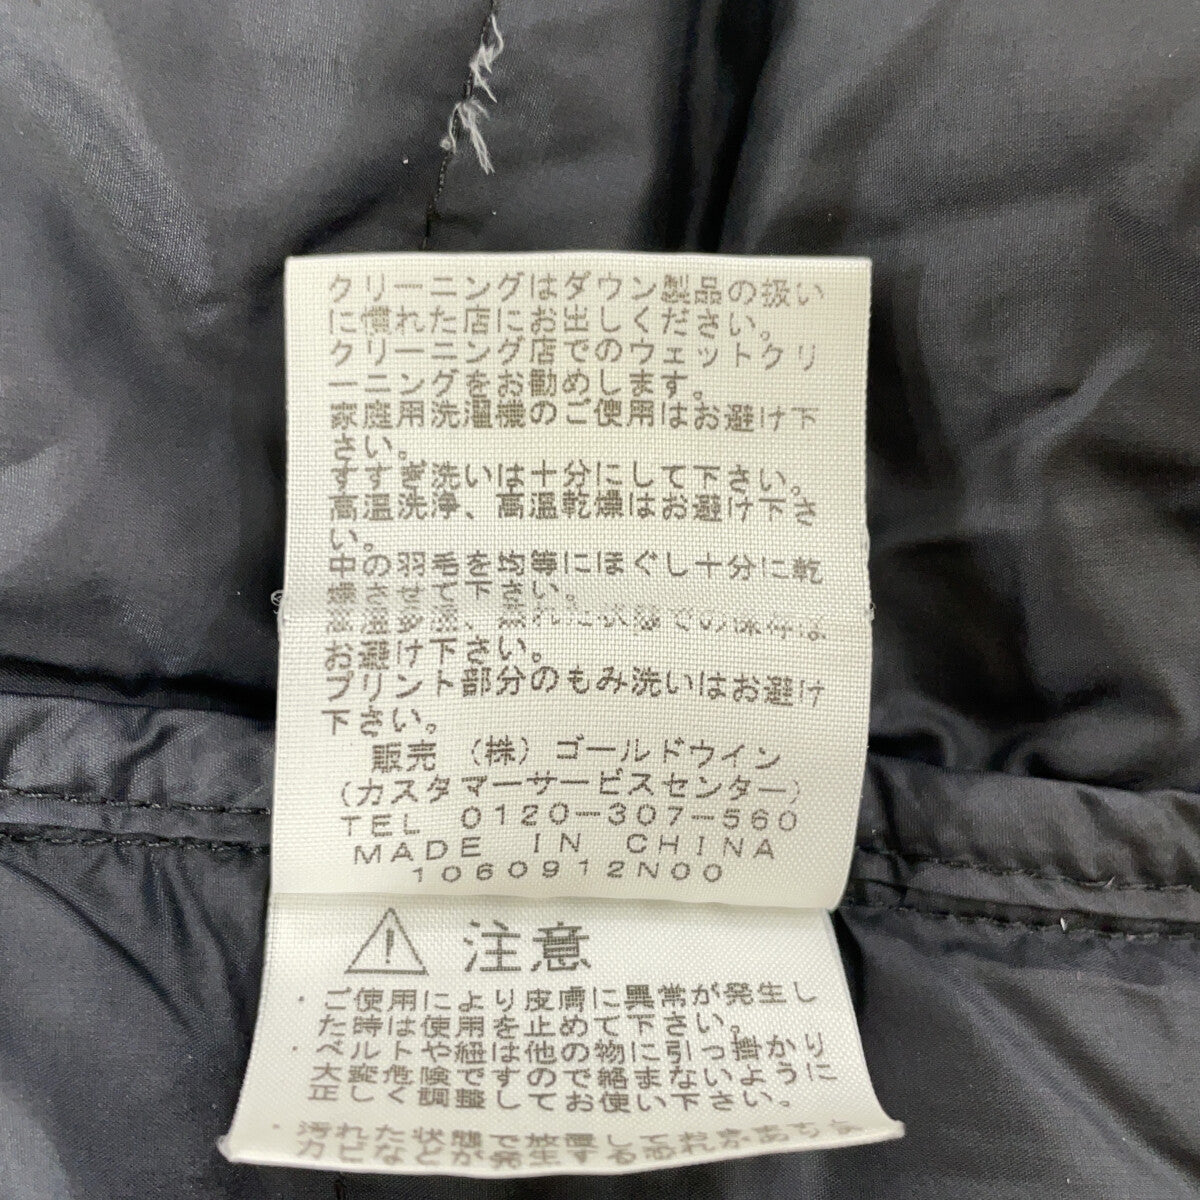 クリーニングはダウン製品の扱い
に慣れた店にお出しください。
クリーニング店でのウェットクリ
ーニングをお勧めします。
家庭用洗濯機のご使用はお避け下
さい。
すすぎ洗いは十分にして下さい。
高温洗浄、高温乾燥はお避け下さ
い。
中の羽毛を均等にほぐし十分に乾
燥させて下さい。
高温多湿、濡れた状態での保存は
お避け下さい。
プリント部分のもみ洗いはお避け
下さい。
販売 (株) ゴールドウイン
(カスタマーサービスセンター)
TEL 0120-307-560
MADE IN CHINA
1060912N00
注意
・ご使用により皮膚に異常が発生し
た時は使用を止めて下さい。
・ベルトや紐は他の物に引っ掛かり
大変危険ですので絡まないように
正しく調整してお使い下さい。
・汚れた状態で放置しておきますと
カビなどが発生する恐れ